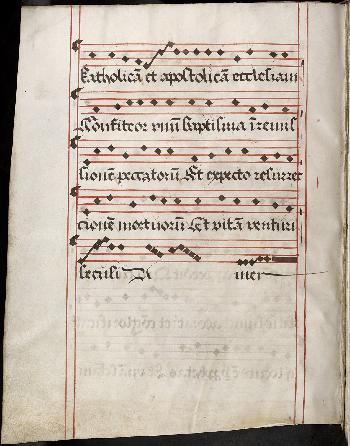 katholicā et apostolicā ecclesiam
Confiteor vnū baptisma ī remis
sionē peccatorū Et expecto resurrec
cionē mortuorū Et vitā venturi
seculi A men